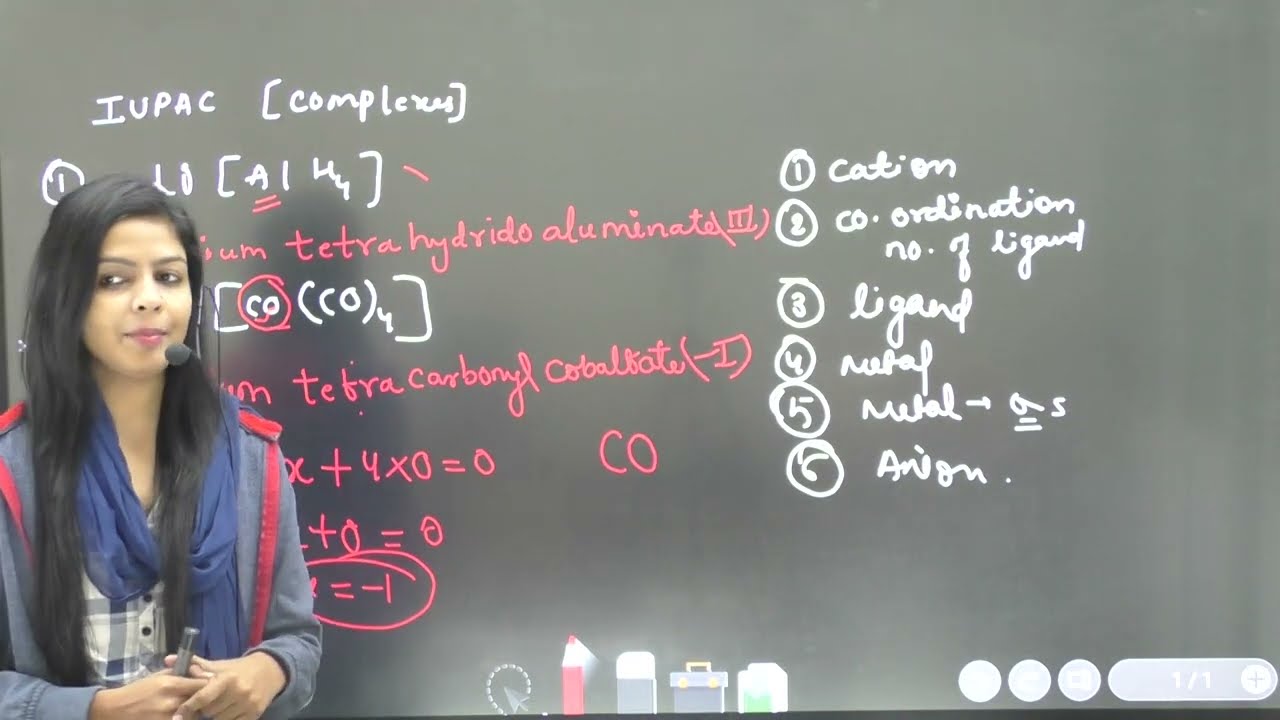 IUPAC [Complexes]
① Li [Al H₄]
ium tetrahydrido aluminate(III)
[CO (CO)₄]
um tetracarbonyl cobaltate(-I)
x + 4×0 = 0
+0 = 0
x = -1
CO
① Cation
② co.ordination
no. of ligand
③ ligand
④ Metal
⑤ Metal → O.S
⑥ Anion.
1/1